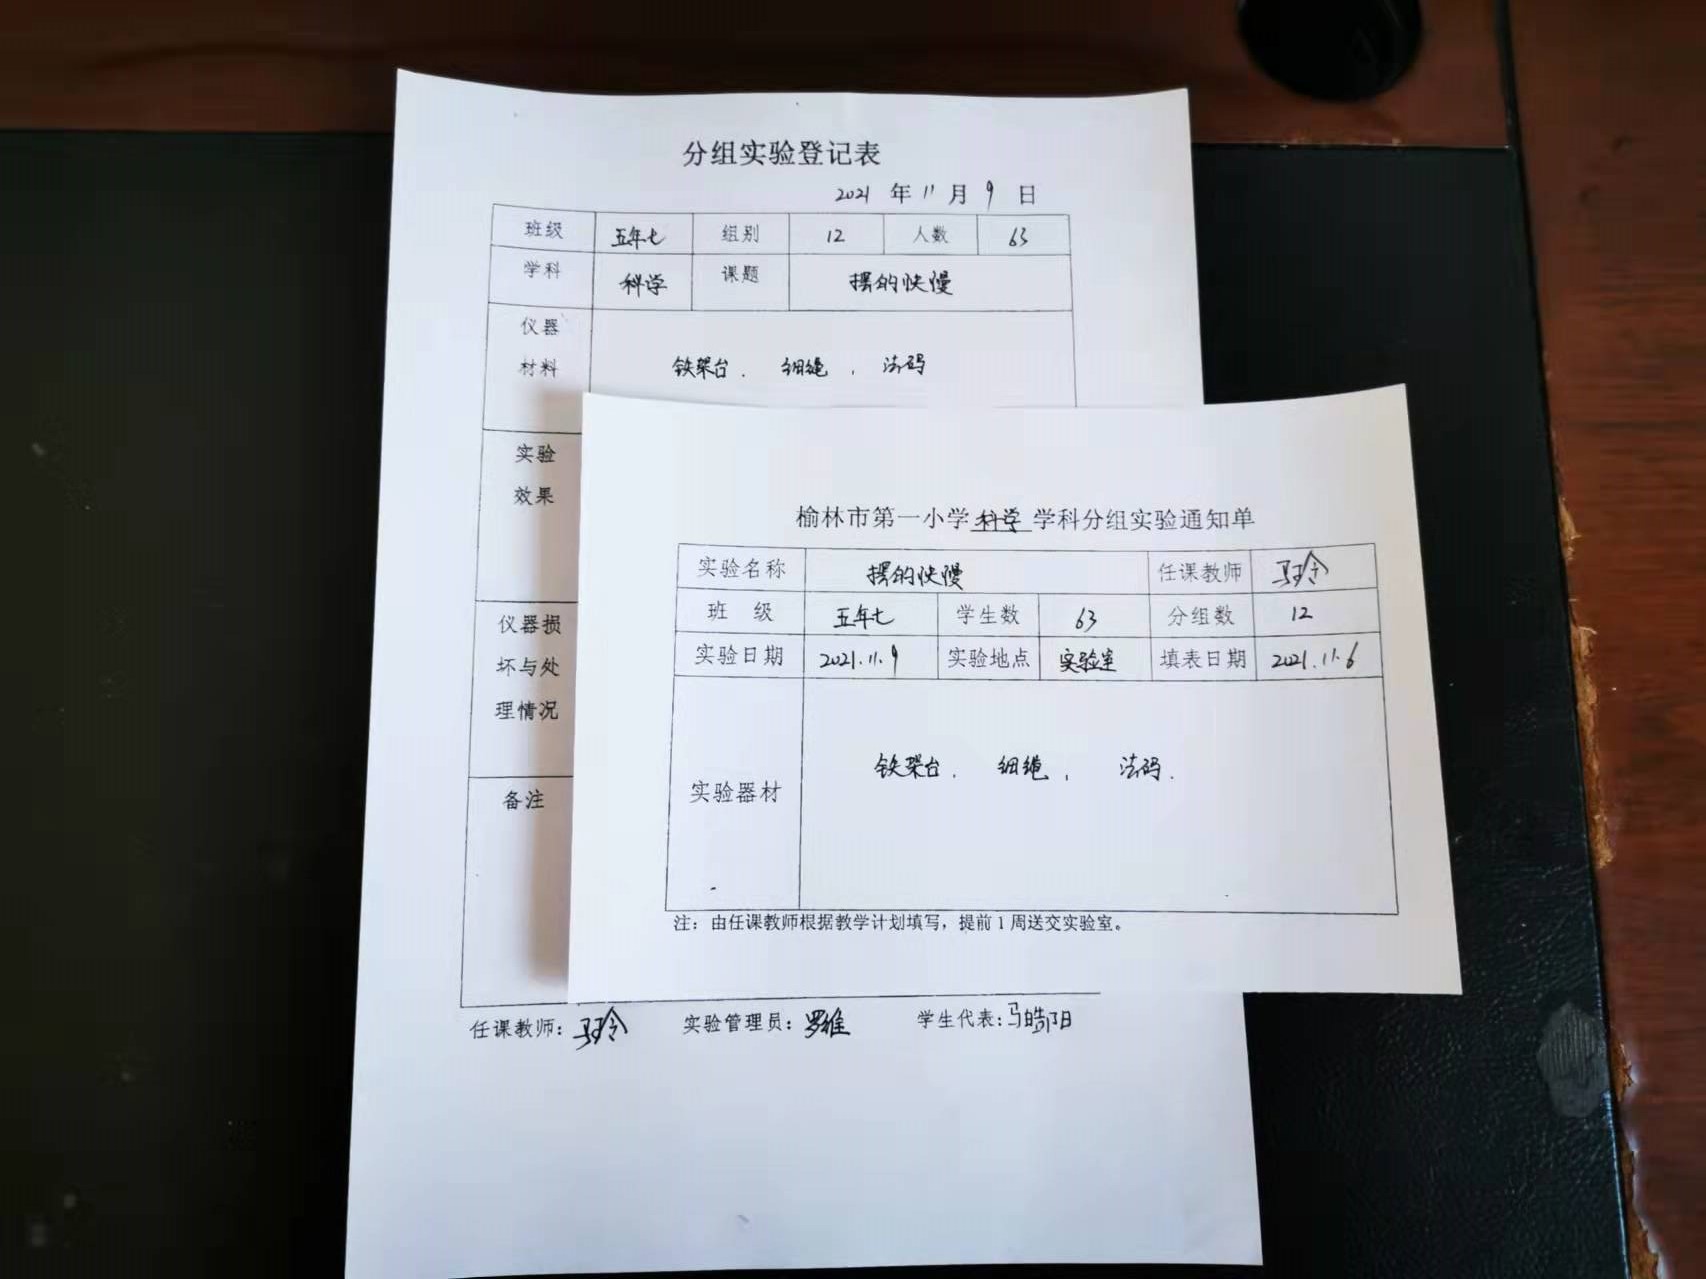 分组实验登记表
2021 年 11 月 9 日
班级 五年七 组别 12 人数 63
学科 科学 课题 摆的快慢
仪器
材料
铁架台、细绳，法码
实验
效果
仪器损
坏与处
理情况
备注
任课教师：马玲 实验管理员：罗维 学生代表：马皓阳
榆林市第一小学科学学科分组实验通知单
实验名称 摆的快慢 任课教师 马玲
班 级 五年七 学生数 63 分组数 12
实验日期 2021.11.9 实验地点 实验室 填表日期 2021.11.6
实验器材 铁架台、细绳，法码.
注：由任课教师根据教学计划填写，提前1周送交实验室。